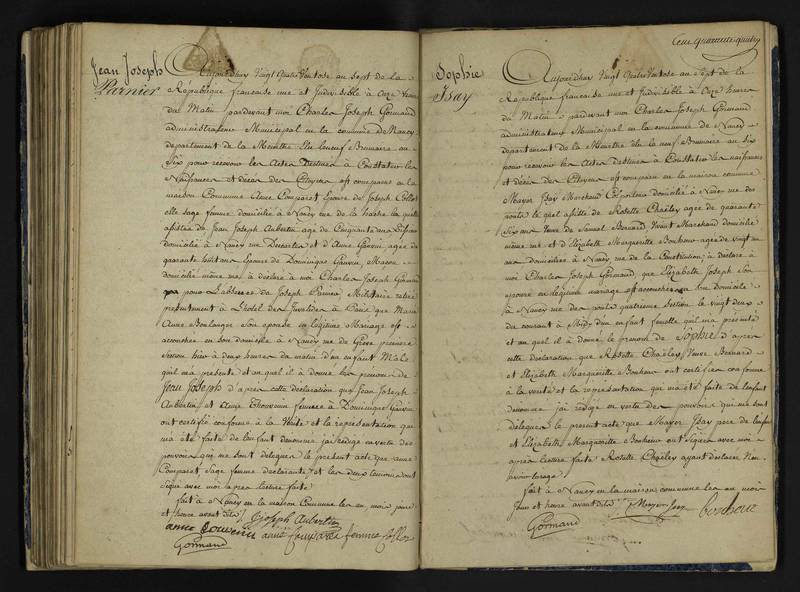 Jean Joseph
Parnier
Aujourd'huy Vingt quatre Ventose an sept de la
République francaise une et Indivisible à onze heures
du Matin pardevant moi Charles Joseph Gormand
administrateur Municipal en la commune de Nancy
département de la Meurthe Elu le neuf Brumaire an
Six pour recevoir les Actes Destinés à Constater les
Naissances et décès des Citoyens est comparue en la
maison Commune Anne Comparet Epouse de Joseph Collot
elle Sage femme domiciliée à Nancy rue de la hache la quelle
assistée de Jean Joseph Aubertin agé de Cinquante
domicilié à Nancy rue et d'Anne agée de
quarante huit ans Epouse de Dominique Maçon
domiciliée même rue à déclaré à moi Charles Joseph Gormand
que pour l'absence de Joseph Militaire
présentement à L'hotel des Invalides à Paris que Marie
Anne Boulanger Son epouse en légitime Mariage est
accouchée en son domicile à Nancy rue de Grève premiere
Section hier à deux heures du matin d'un enfant Male
quil ma présenté et au quel il à donné les prénoms de
Jean Joseph d'apres cette déclaration que Jean Joseph
Aubertin et Anne Thouvenin femme à Dominique
ont certifié conforme à la Vérité et la représentation qui
ma été faite de l'enfant dénommé j'ai rédigé en vertu des
pouvoirs qui me sont délégués le présent acte que anne
Comparet Sage femme déclarante et les deux témoins ont
signé avec moi apres lecture faite
fait à Nancy en la maison Commune les an mois jour
et heure avant dits Joseph Aubertin
anne Touvenin anne Comparet femme Collot
Gormand
Cent quarante quatre
Sophie
Isay
Aujourd'huy Vingt quatre Ventose an Sept de la
République francaise une et Indivisible à Onze heures
du Matin pardevant moi Charles Joseph Gormand
administrateur Municipal en la commune de Nancy
département de la Meurthe élu le neuf Brumaire an six
pour recevoir les Actes destinés à Constater les naissances
et décès des Citoyens est comparu en la maison commune
Mayer Isay Marchand Colporteur domicilié à Nancy rue des
ponts le quel assisté de Rosette Charley agée de quarante
Six ans Veuve de Samuel Bernard Vivant Marchand domiciliée
même rue et d'Elizabeth Margueritte Bonheur agée de vingt un
ans domiciliée à Nancy rue de la Constitution; à declaré à
moi Charles Joseph Gormand, que Elizabeth Joseph Son
epouse en légitime mariage est accouchée en son domicile
à Nancy rue des ponts quatrieme Section le vingt deux
du courant à Midy d'un enfant femelle quil ma présenté
et au quel il à donné le prénom de Sophie d'apres
cette déclaration que Rosette Charley, Veuve Bernard
et Elizabeth Margueritte Bonheur ont certifiée conforme
à la verité et la représentation qui ma été faite de l'enfant
dénommé j'ai rédigé en vertu des pouvoirs qui me sont
délégués le présent acte que Mayer Isay pere de l'enfant
et Elizabeth Margueritte Bonheur ont Signé avec moi
apres lecture faite Rosette Charley ayant déclaré
fait à Nancy en la maison commune les an mois
jour et heure avant dits Mayer Isay bonheur
Gormand